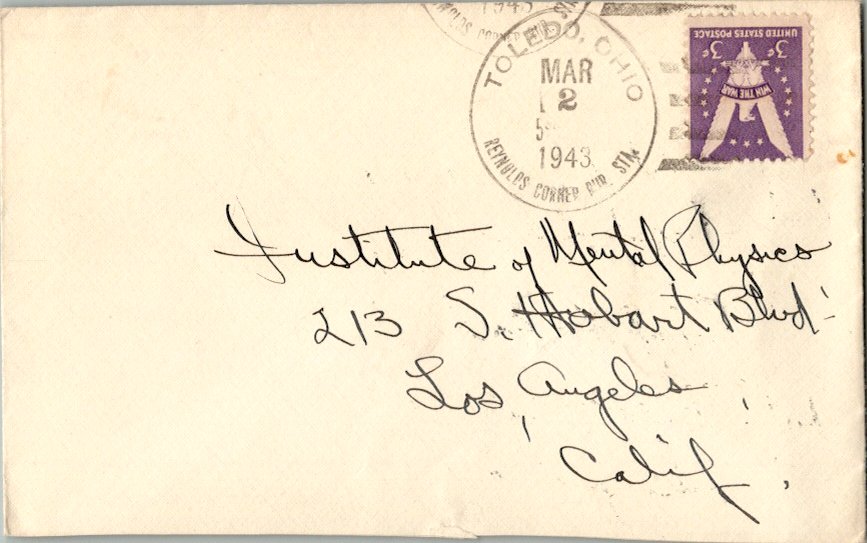 1943
REYNOLDS CORNER RUR. STA.
TOLEDO, OHIO
MAR
2
1943
REYNOLDS CORNER RUR. STA.
UNITED STATES POSTAGE
3¢ 3¢
WIN THE WAR
Institute of Mental Physics
213 S. Hobart Blvd.
Los Angeles,
Calif.